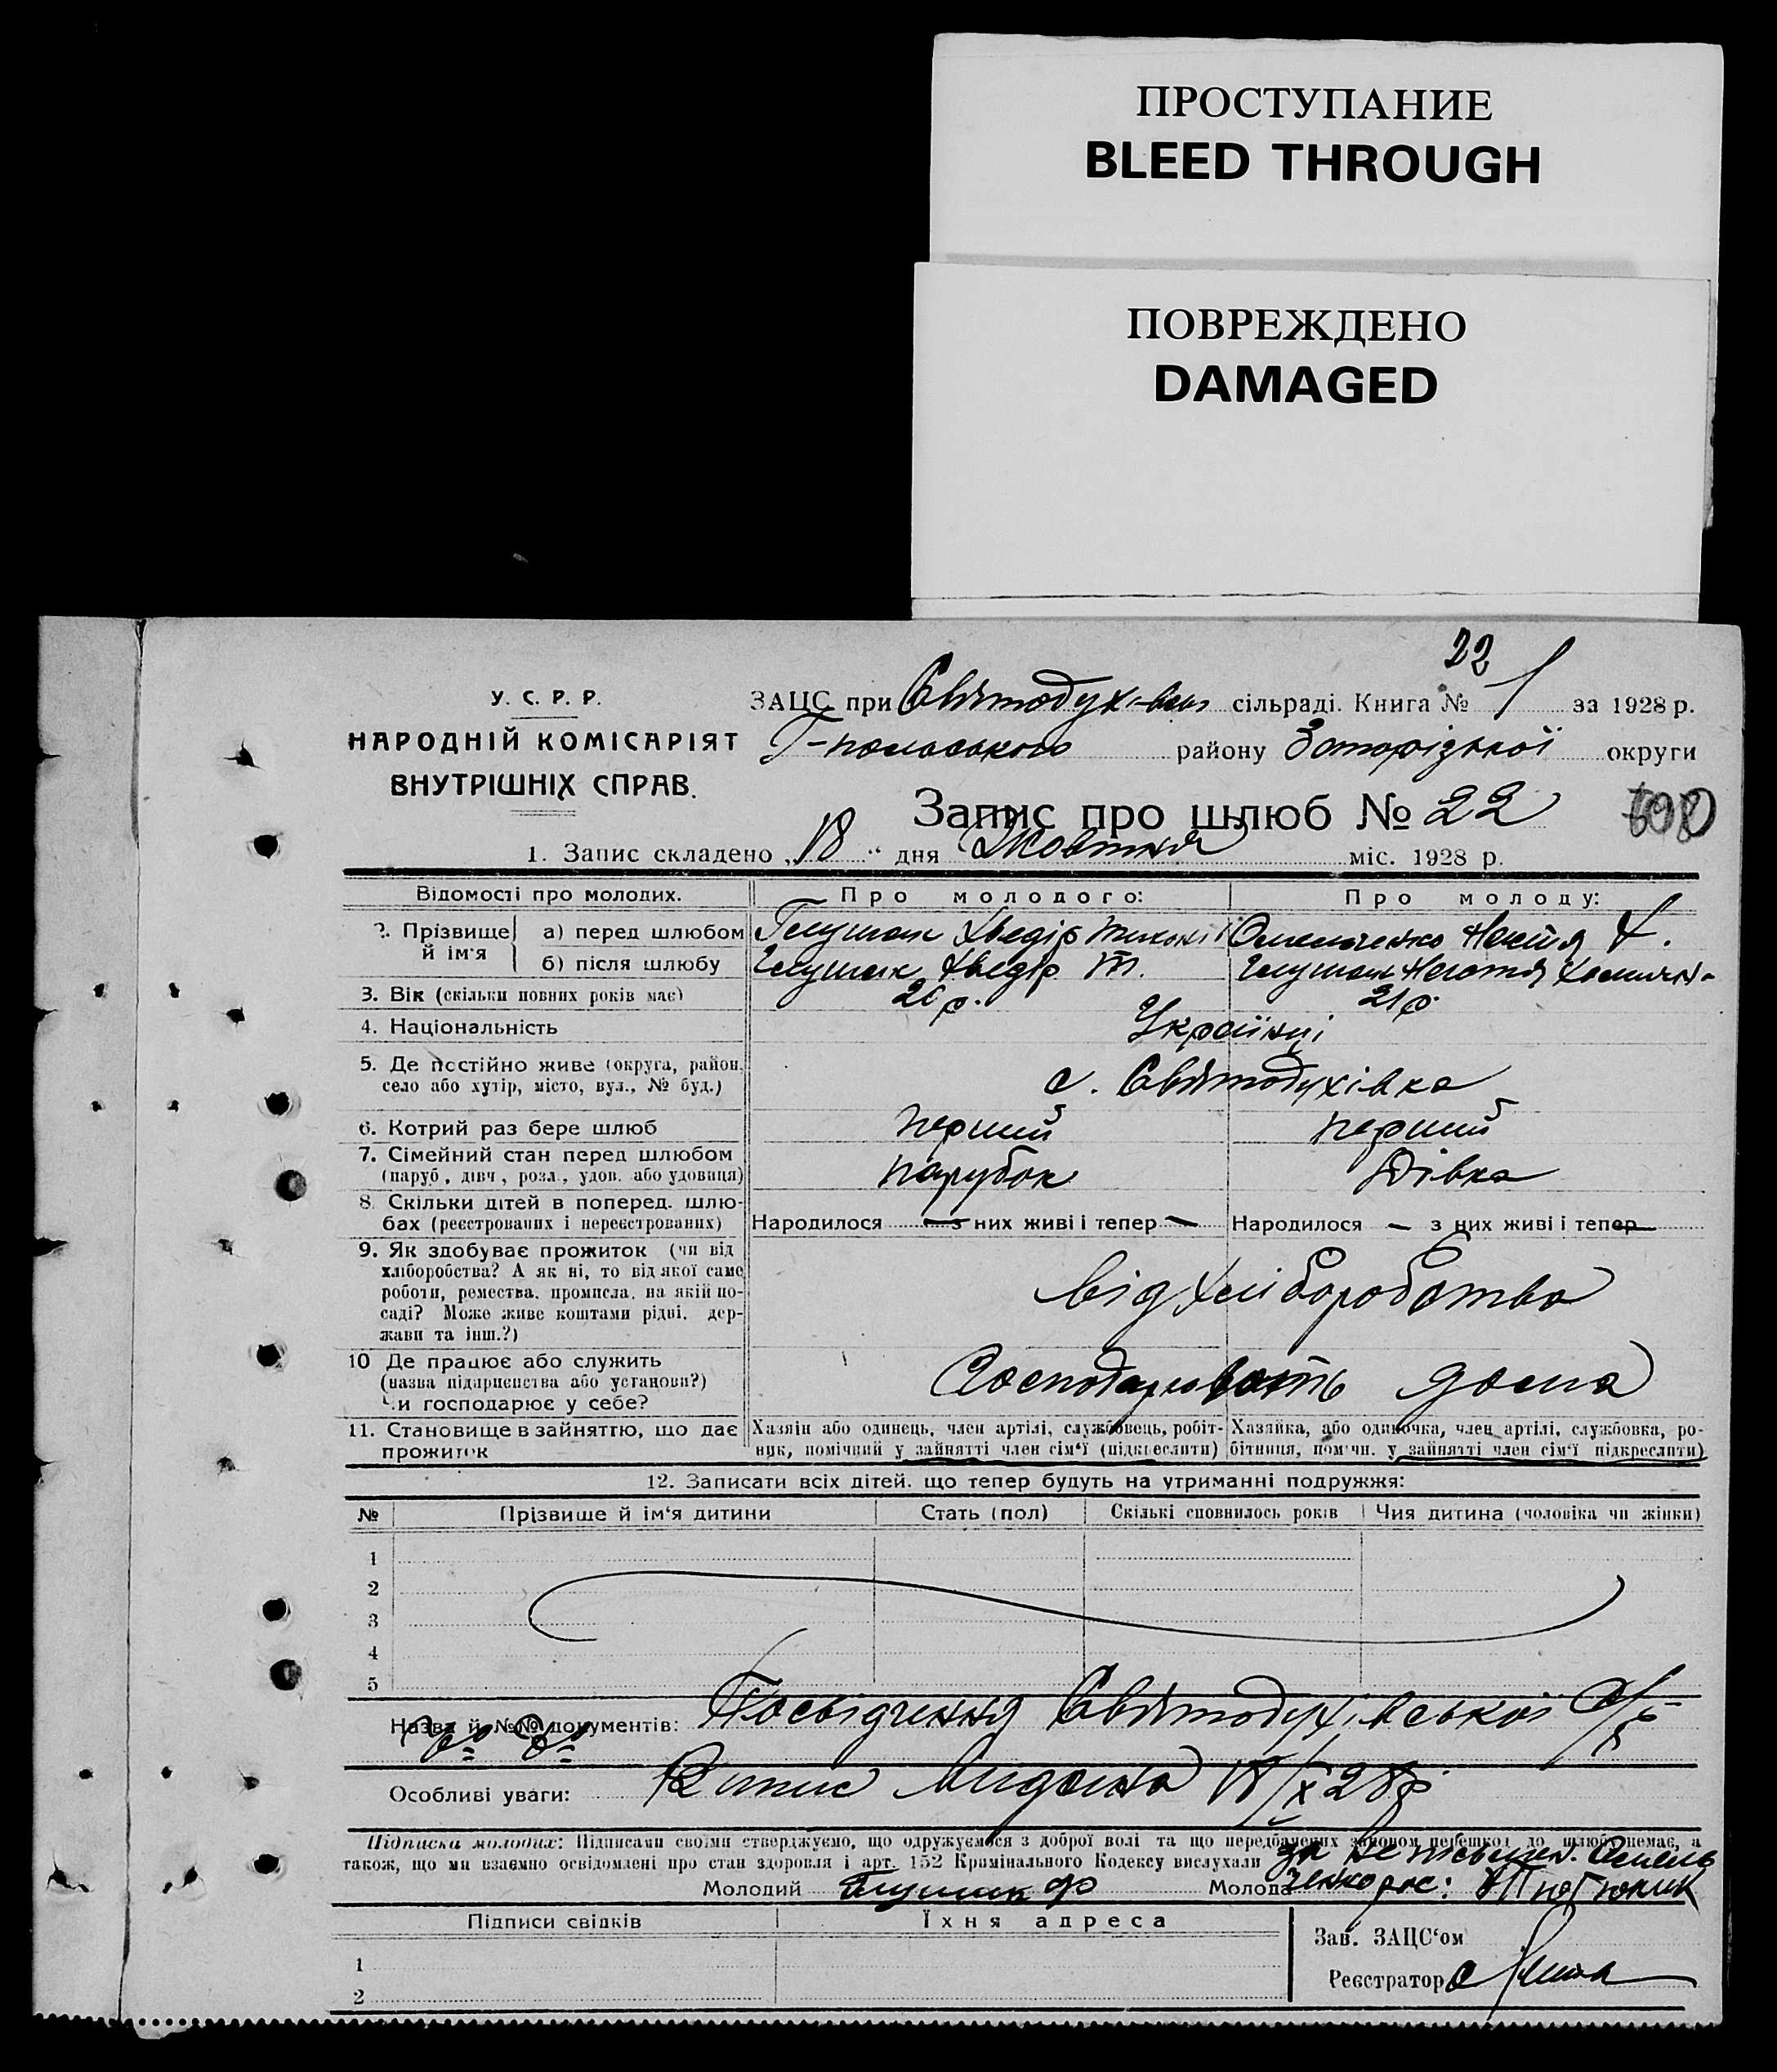 ПРОСТУПАНИЕ
BLEED THROUGH
ПОВРЕЖДЕНО
DAMAGED
22
У. С. Р. Р.
НАРОДНІЙ КОМІСАРІЯТ
ВНУТРІШНІХ СПРАВ.
ЗАЦС при Святодухівськ сільраді. Книга № 1 за 1928 р.
Г-польського району Запорізької округи
Запис про шлюб № 22
1. Запис складено „18“ дня Жовтня міс. 1928 р.
Відомості про молодих. Про молодого: Про молоду:
2. Прізвище й ім'я а) перед шлюбом Глушак Хведір Тихоні Омельченко Настя Х.
б) після шлюбу Глушак Хведір Т. Глушак Настя
3. Вік (скільки повних років має) 20 р. 21 р.
4. Національність Українці
5. Де постійно живе (округа, район, село або хутір, місто, вул., № буд.) с. Святодухівка
6. Котрий раз бере шлюб перший перший
7. Сімейний стан перед шлюбом (паруб., дівч., розл., удов. або удовиця) парубок Дівка
8. Скільки дітей в поперед. шлюбах (реєстрованих і нереєстрованих) Народилося — з них живі і тепер — Народилося — з них живі і тепер —
9. Як здобуває прожиток (чи від
хліборобства? А як ні, то від якої саме
роботи, ремества, промисла, на якій по-
саді? Може живе коштами рідні, дер-
жави та інш.?) від Хліборобства
10 Де працює або служить
(назва підприємства або установи?)
Чи господарює у себе? Господарюють дома
11. Становище в зайняттю, що дає прожиток
Хазяїн або одинець, член артілі, службовець, робіт-
ник, помічний у зайнятті член сім'ї (підкреслити)
Хазяйка, або одиночка, член артілі, службовка, ро-
бітниця, помічн. у зайнятті член сім'ї підкреслити)
12. Записати всіх дітей, що тепер будуть на утриманні подружжя:
№ Прізвище й ім'я дитини Стать (пол) Скількі сповнилось років Чия дитина (чоловіка чи жінки)
1
2
3
4
5
Назва й №№ документів: Посвідчення Святодухівської С/р
Особливі уваги: Витис Видано 18/X 28р
Підписка молодих: Підписами своїми стверджуємо, що одружуємося з доброї волі та що передбачених законом перешкод до шлюбу немає, а
також, що ми взаємно освідомлені про стан здоров'я і арт. 152 Кримінального Кодексу вислухали за не письмен. Омель
Молодий Глушак Ф Молода ченко рос:
Підписи свідків Їхня адреса
Зав. ЗАЦС'ом
1
Реєстратор
2